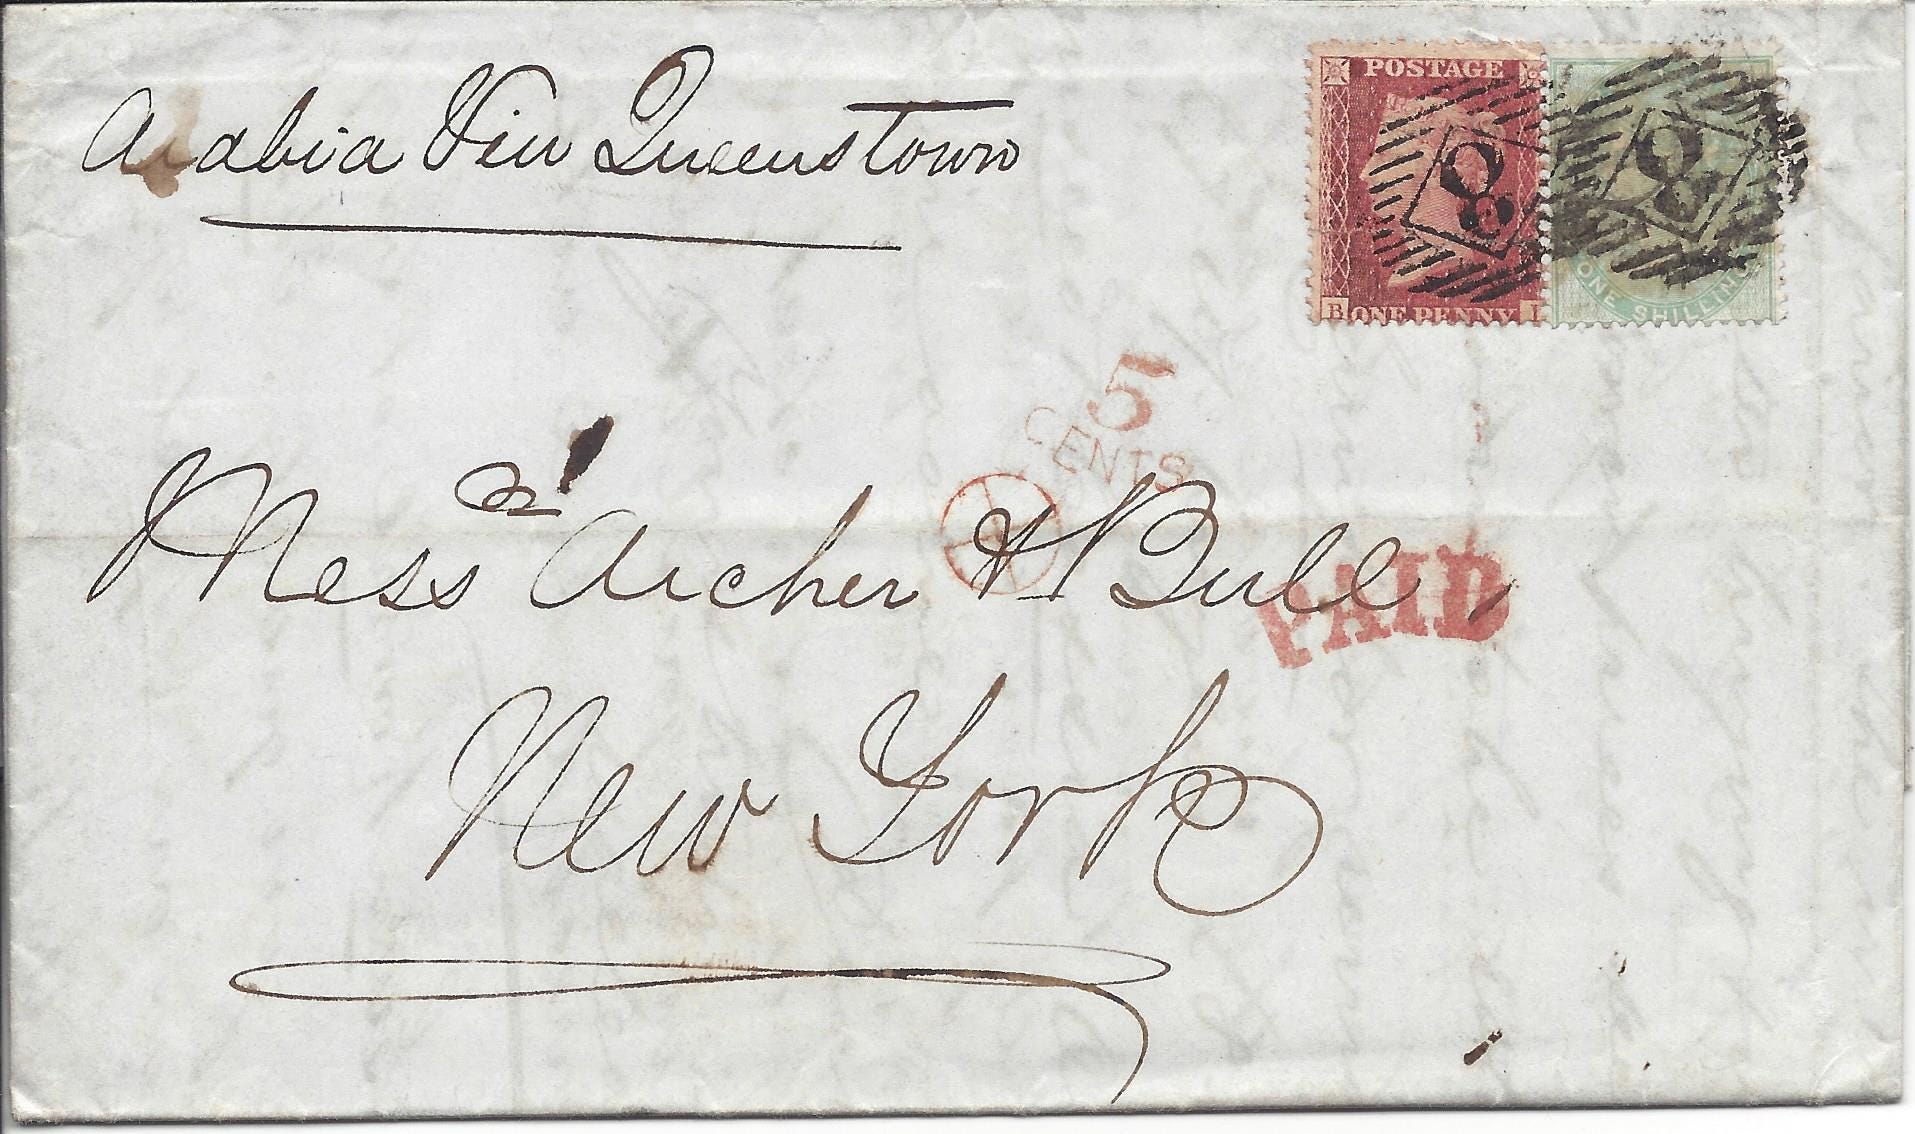 Arabia Via Queenstown
POSTAGE
B ONE PENNY I
ONE SHILLING
8
8
5
CENTS
Messrs Archer & Bull,
PAID
New York